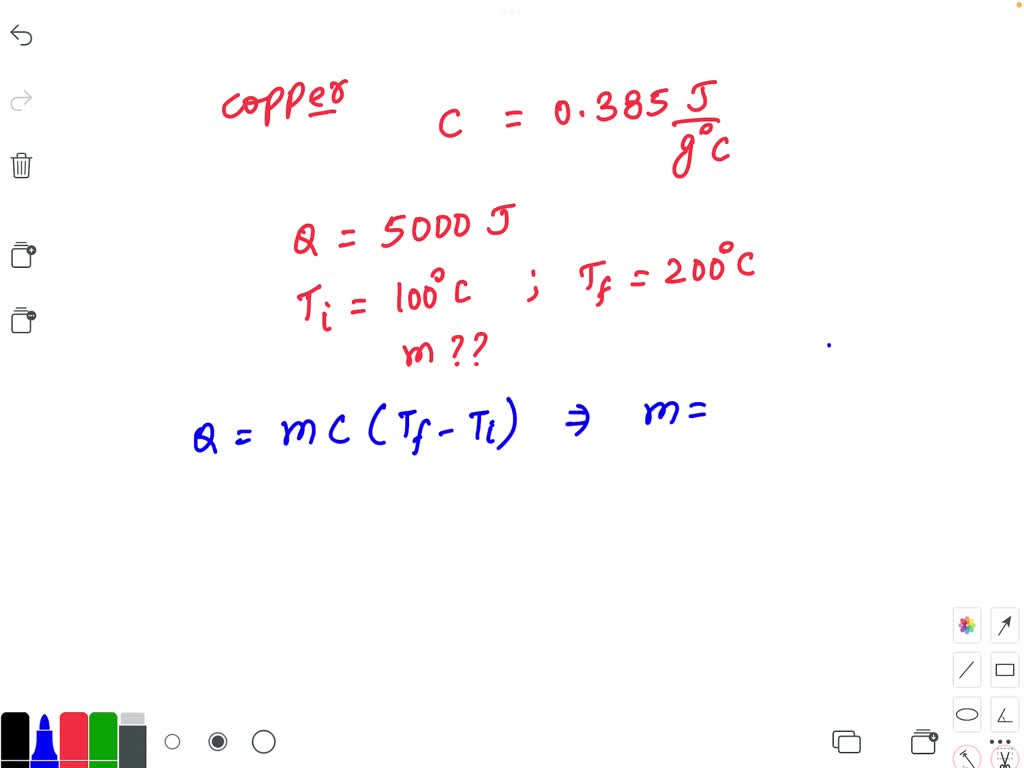 copper C = 0.385 J/g°C
Q = 5000 J
Ti = 100°C ; Tf = 200°C
m ??
Q = mC (Tf - Ti) ⇒ m =